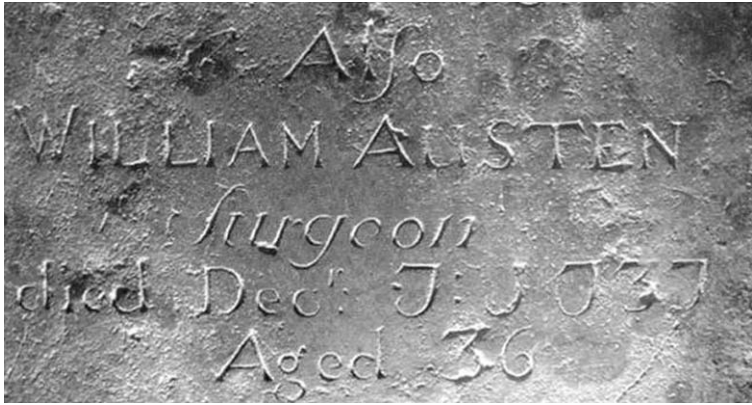 Also
WILLIAM AUSTEN
Surgeon
died Decr. 7: 1737
Aged 36